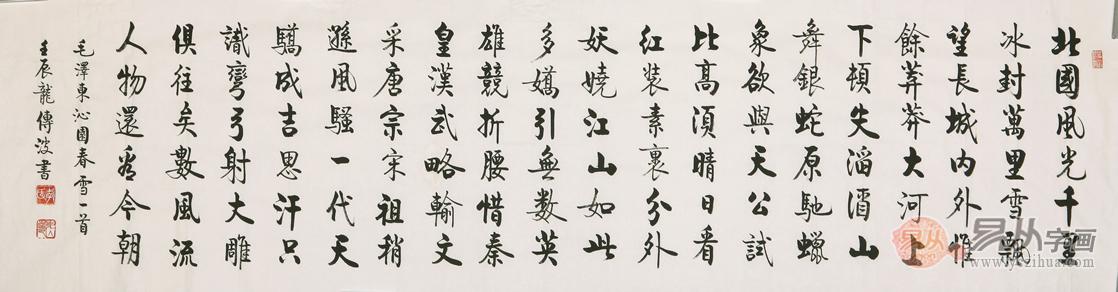 北國風光千里
冰封萬里雪飄
望長城内外惟
餘莽莽大河上
下頓失滔滔山
舞銀蛇原馳蠟
象欲與天公試
比高須晴日看
紅裝素裹分外
妖嬈江山如此
多嬌引無數英
雄競折腰惜秦
皇漢武略輸文
采唐宗宋祖稍
遜風騷一代天
驕成吉思汗只
識彎弓射大雕
俱往矣數風流
人物還看今朝
毛澤東沁園春雪一首
壬辰龍傳波書
易从字画